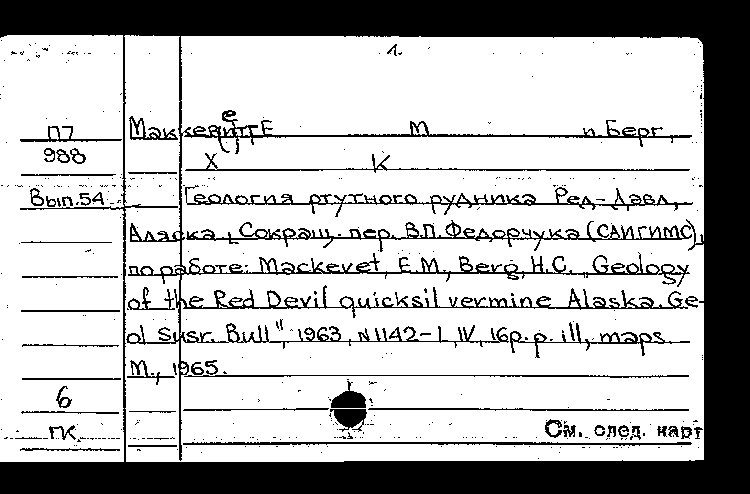 1.
П7 Маккеветт Е М и Берг,
988 Х К
Вып.54 Геология ртутного рудника Ред-Дэвл,
Аляска, Сокращ. пер. В.П. Федорчука (САИГИМС),
по работе: Mackevet, E.M., Berg, H.C. „Geology
of the Red Devil quicksil vermine Alaska. Ge-
ol Susr. Bull", 1963, N1142-I, IV, 16p.p. ill, maps.
М., 1965.
6
ГК См. след. карт